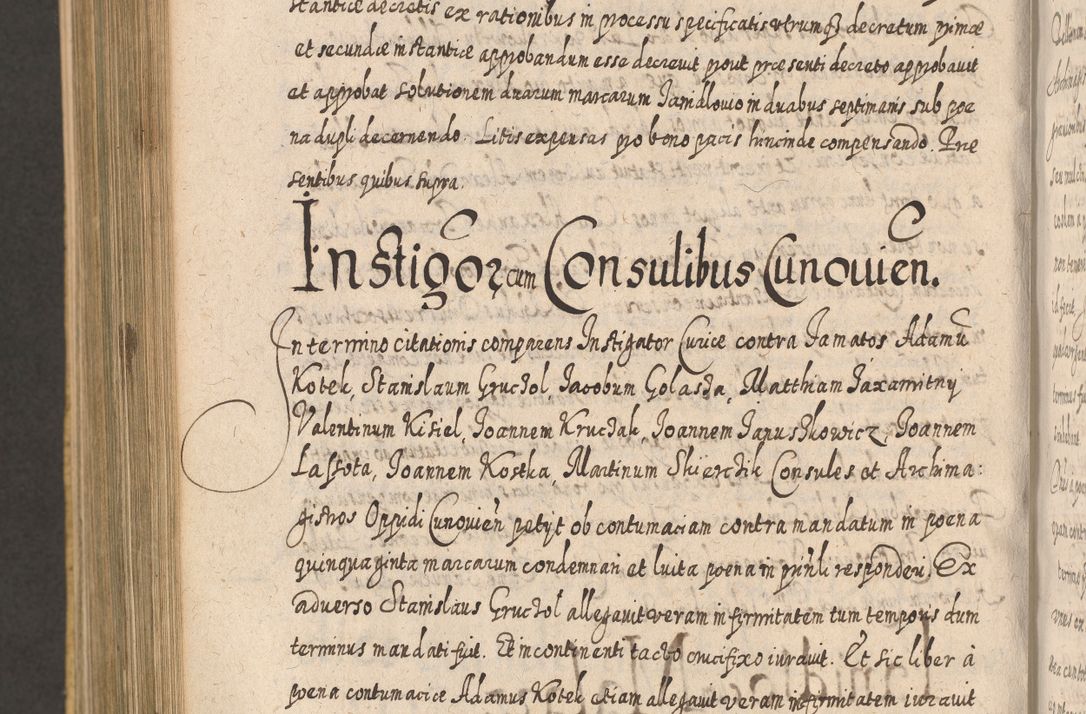 stantiæ decretis ex rationibus in processu specificatis utrumq3 decretum primæ
et secundæ instantiæ approbandum esse decrevit prout præsenti decreto approbavit
et approbat solutionem duarum marcarum Janidlovio in duabus septimanis sub poe
na dupli decernendo. Litis expensas pro bono pacis hincinde compensando. Præ
sentibus quibus supra
Instigor cum Consulibus Cunoviien.
In termino citationis comparens Instigator Curiæ contra famatos Adamū
Kotek, Stanislaum Gruchol, Jacobum Golasza, Matthiam Jaxamitny
Valentinum Kisiel, Joannem Kruczak, Joannem Januszkowicz, Joannem
Lassota, Joannem Kostka, Martinum Skierczik Consules et Archima:
gistros Oppidi Cunovien petyt ob contumaciam contra mandatum in poena
quinquaginta marcarum condemnari et luita poena in prinli responderi. Ex
adverso Stanislaus Gruchol allegavit veram infirmitatem tum temporis dum
terminus mandati fuit. Et incontinenti tacto crucifixo iuravit. Et sic liber à
poena contumaciæ Adamus Kotek etiam allegavit veram infirmitatem iuravit